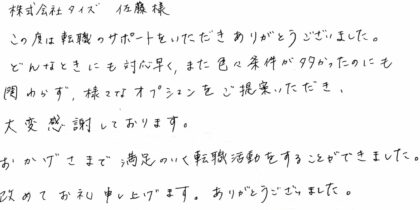 株式会社タイズ 佐藤様
この度は転職のサポートをいただきありがとうございました。
どんなときにも対応早く、また色々条件が多かったのにも
関わらず、様々なオプションをご提案いただき、
大変感謝しております。
おかげさまで満足のいく転職活動をすることができました。
改めてお礼申し上げます。ありがとうございました。